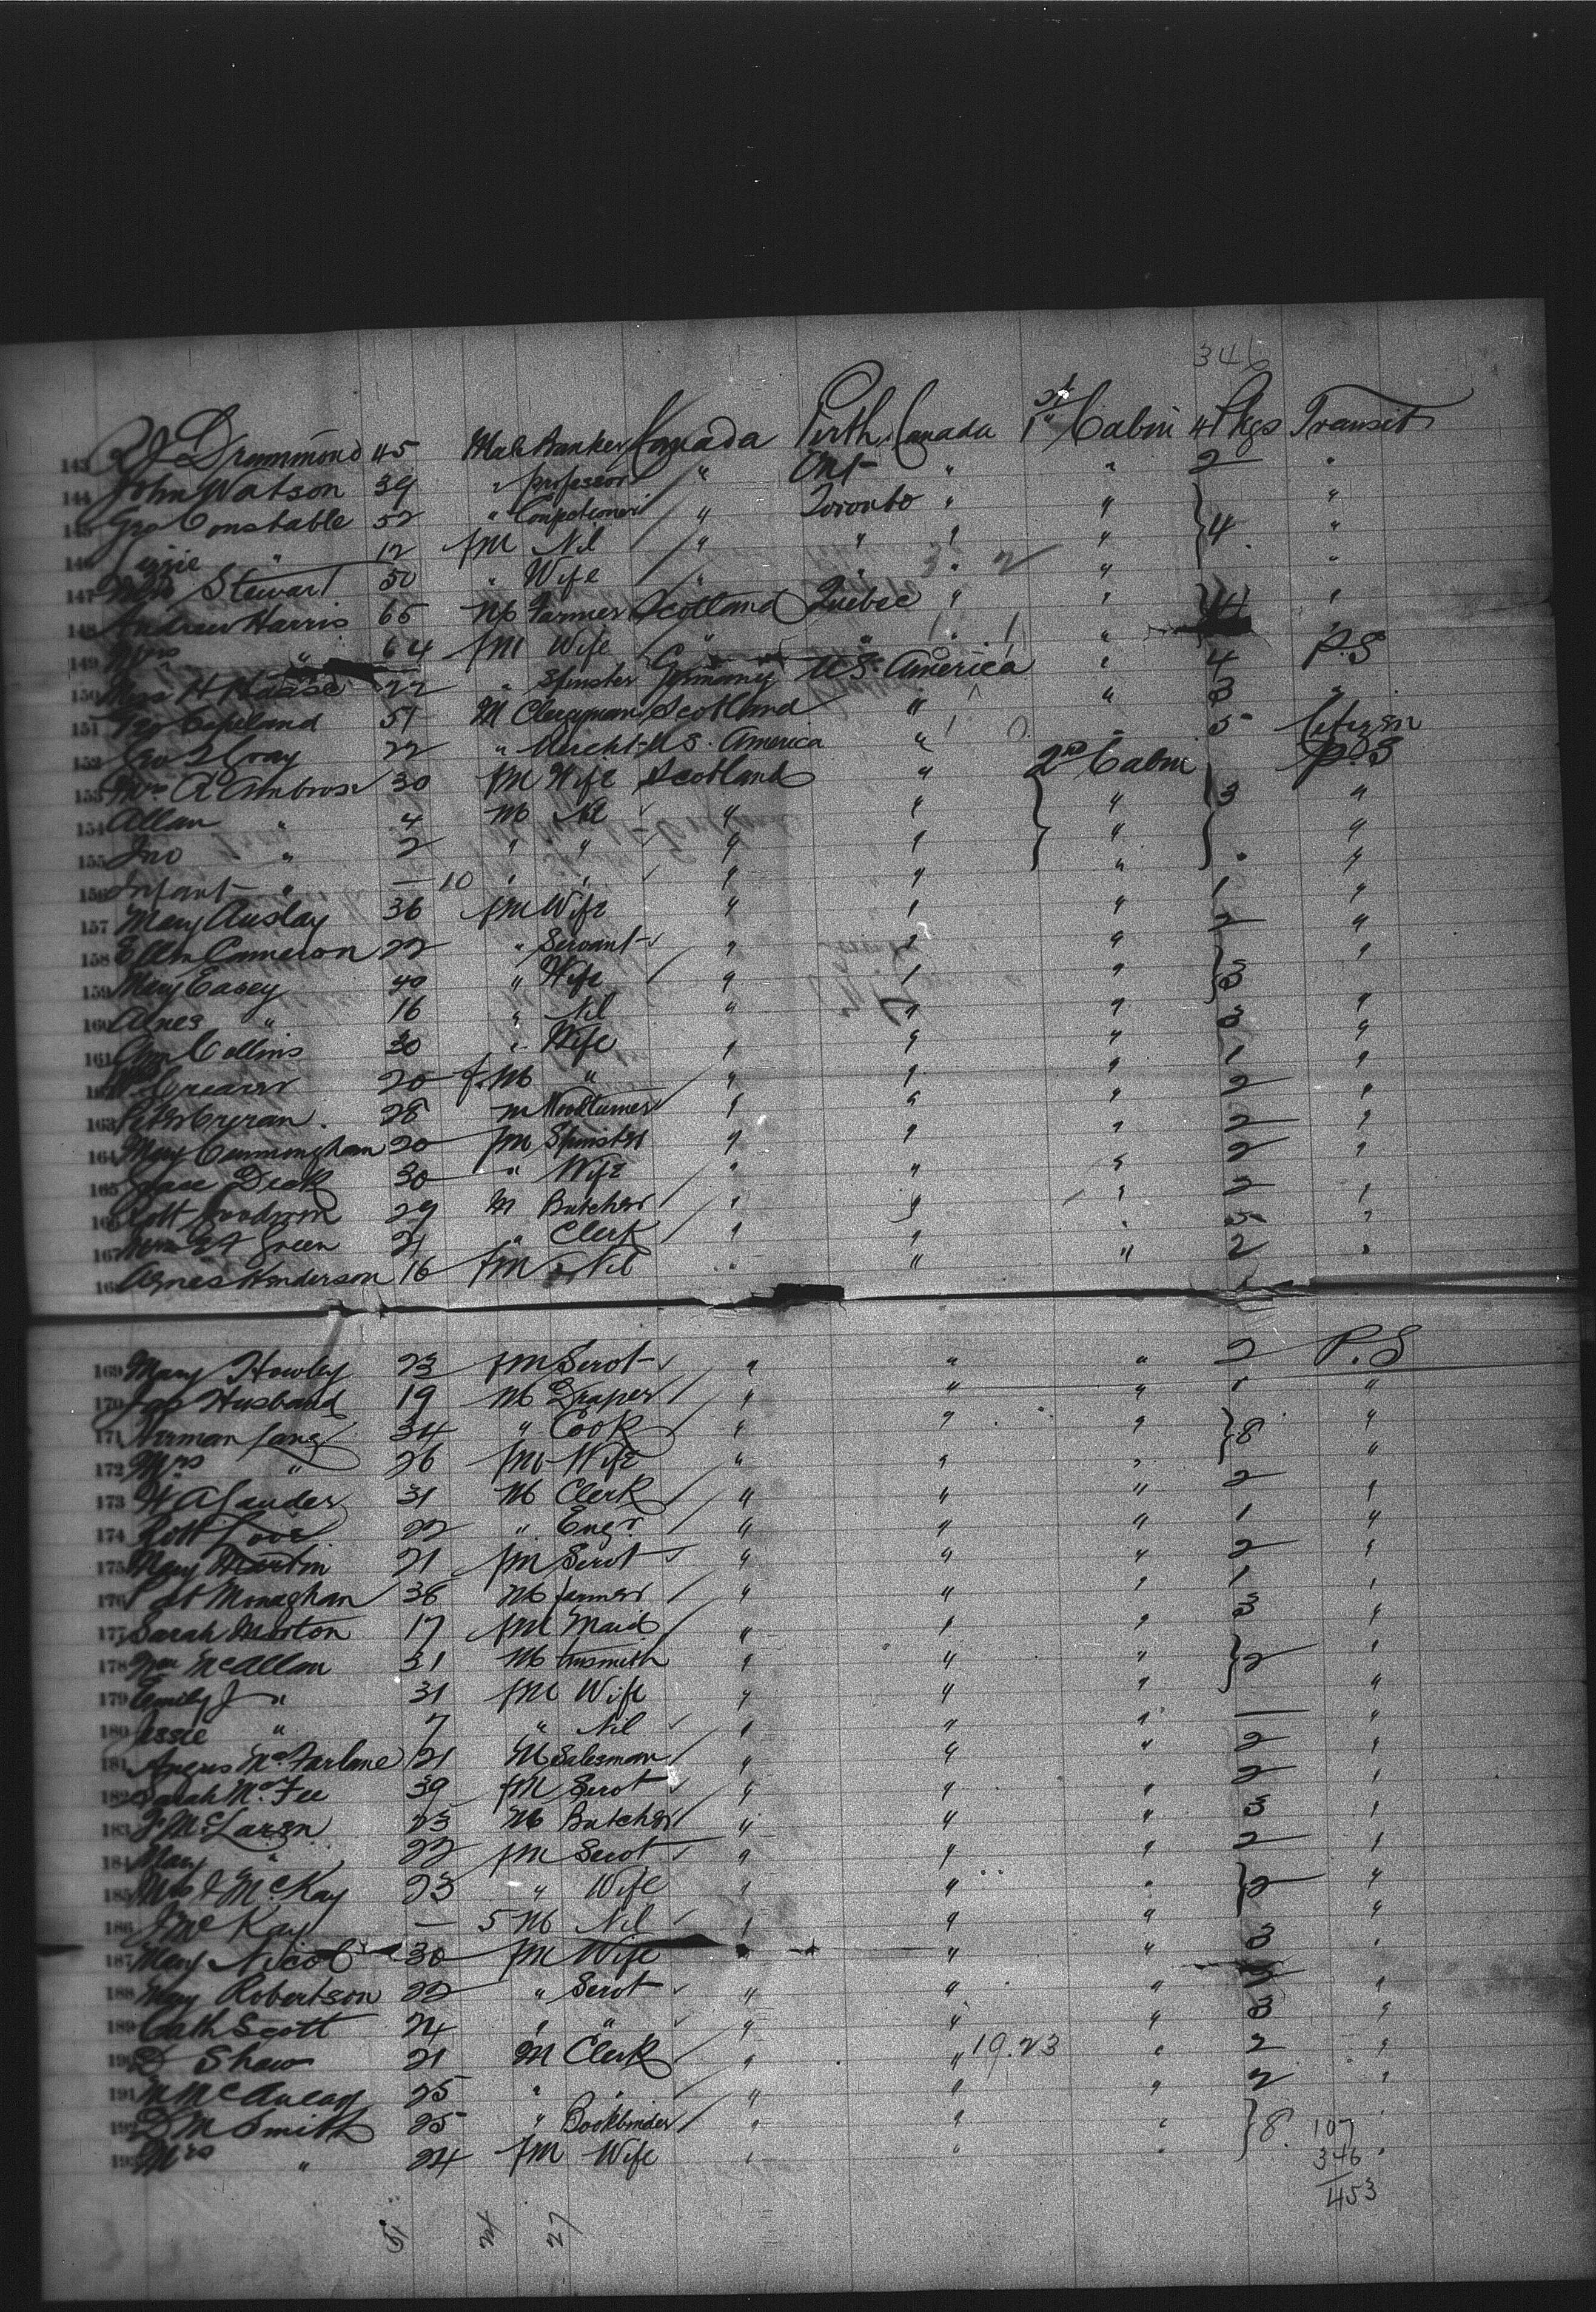 346
143 R J Drummond 45 Male Banker Canada Perth Canada 1st Cabin 4 Pkgs Transit
144 John Watson 39 " professor " Ont " " 2 "
145 Geo Constable 52 " " Toronto " " 4 "
146 " 12 fM Nil " " " " "
147 Mrs Stewart 50 " Wife " " " " "
148 Andrew Harris 65 M Farmer Scotland Quebec " " 4 "
149 Mrs " 64 fM Wife " " " " "
150 Miss H Hasse 22 " Spinster Germany U S. America " 4 P.S
151 Copeland 51 M Clergyman Scotland " " 3 "
152 Geo Gray 22 " Mercht U S. America " " 5 Citizen
153 Mrs A Ambrose 30 fM Wife Scotland " 2nd Cabin 3 P.S
154 Allan " 4 M Nil " " " "
155 Jno " 2 " " " " " "
156 Infant " — 10 " " " " " "
157 Mary Auslay 36 fM Wife " " " 1 "
158 Ellen Cameron 22 " Servant " " " 2 "
159 Mary Easey 40 " Wife " " " 3 "
160 Agnes " 16 " Nil " " "
161 Collins 30 " Wife " " " 3 "
162 20 f.M " " " " 1 "
163 Peter Creran 28 m Woodturner " " " 2 "
164 Mary Cunningham 20 fM Spinster " " " 2 "
165 Deck 30 " Wife " " " 2 "
166 Robt Goodwin 29 M Butcher " " " 2 "
167 Green 21 " Clerk " " " 5 "
168 Agnes Henderson 16 fM Nil " " " 2 "
169 Mary Howley 23 fM Servt " " " 2 P.S
170 Jas Husband 19 M Draper " " " 1 "
171 Herman Lang 34 " Cook " " " 8 "
172 Mrs " 26 fM Wife " " " "
173 H A Lauder 31 M Clerk " " " 2 "
174 Robt Love 22 " Engr. " " " 1 "
175 Mary Martin 21 fM Servt " " " 2 "
176 Pat Monaghan 38 M farmer " " " 1 "
177 Sarah Morton 17 fM Maid " " " 3 "
178 Wm McAllan 31 M tinsmith " " " 2 "
179 Emily J " 31 fM Wife " " " "
180 Jessie " 7 " Nil " " " — "
181 Angus McFarlane 21 M Salesman " " " 2 "
182 Sarah McFee 39 fM Servt " " " 2 "
183 J McLaren 23 M Butcher " " " 3 "
184 Mary " 22 fM Servt " " " 2 "
185 Mrs J McKay 23 " Wife " " " 2 "
186 J McKay — 5 M Nil " " " "
187 Mary Nicol 30 fM Wife " " " 3 "
188 May Robertson 22 " Servt " " " 2 "
189 Cath Scott 24 " " " " " 3 "
190 D Shaw 21 M Clerk " " 19.23 " 2 "
191 25 " " " " " 2 "
192 D M Smith 25 " Bookbinder " " " 8 107
193 Mrs " 24 fM Wife " " " 346 "
453
51 24 27